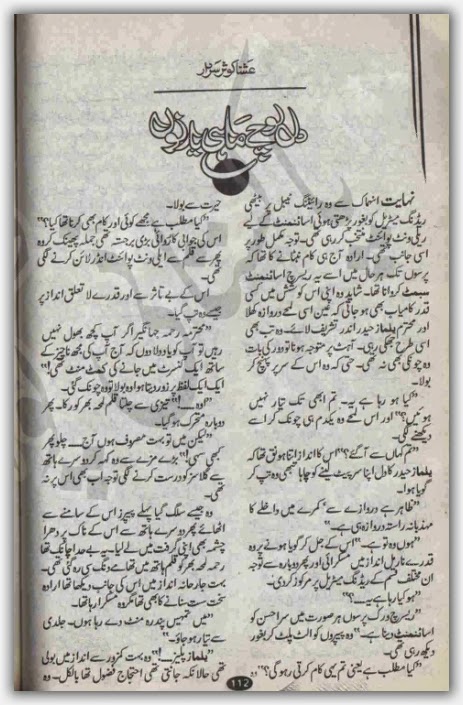 عشنا کوثر سردار
دل لوچے ماہی یار نوں
نہایت انہماک سے وہ رائٹنگ ٹیبل پر بیٹھی
ریڈنگ میٹریل کو بغور پڑھتی ہوئی اسائنمنٹ کے لیے
ریلی ونٹ پوائنٹ منتخب کر رہی تھی۔ توجہ مکمل طور پر
اسی جانب تھی۔ ارادہ آج ہی کام نمٹانے کا تھا کہ
پرسوں تک ہر حال میں اسے یہ ریسرچ اسائنمنٹ
سبمٹ کروانا تھا۔ شاید وہ اپنی اس کوشش میں کسی
قدر کامیاب بھی ہو جاتی کہ عین اسی لمحے دروازہ کھلا
اور محترم یلماز حیدر اندر تشریف لائے۔ وہ تب بھی
اسی طرح جھکی رہی۔ آہٹ پر متوجہ ہونا تو دور کی بات
وہ چونکی بھی نہ تھی۔ حتیٰ کہ وہ اس کے سر پر پہنچ کر
بولا۔
"کیا ہو رہا ہے یہ۔ تم ابھی تک تیار نہیں
ہوئیں؟" اور اس لمحے وہ یکدم ہی چونک کر اسے
دیکھنے لگی۔
"تم کہاں سے آ گئے؟" اس کا انداز اتنا ہونق تھا کہ
یلماز حیدر کا دل اپنا سر پیٹ لینے کو چاہا تبھی وہ تپ کر
گویا ہوا۔
"ظاہر ہے دروازے سے' کمرے میں داخلے کا
مہذبانہ راستہ دروازہ ہی ہے۔"
"ہوں وہ تو ہے۔" اس کے جل کر گویا ہونے پر وہ
قدرے نارمل انداز میں مسکرائی اور پھر دوبارہ سے توجہ
ان مختلف قسم کے ریڈنگ میٹریل پر مرکوز کر دی۔
"ہو کیا رہا ہے یہ۔۔۔؟"
"ریسرچ ورک پرسوں ہر صورت میں سر احسن کو
اسائنمنٹ دینا ہے۔" وہ پیپروں کو الٹ پلٹ کر بغور
دیکھ رہی تھی۔
"کیا مطلب ہے یعنی تم یہی کام کرتی رہو گی؟" وہ
حیرت سے بولا۔
"کیا مطلب ہے مجھے کوئی اور کام بھی کرنا تھا کیا؟"
اس کی جوابی کارروائی بڑی برجستہ تھی جملہ پھینک کر وہ
پھر سے قلم سے ریلی ونٹ پوائنٹ انڈر لائن کرنے لگی
تھی۔
اس کے بے تاثر سے اور قدرے لا تعلق انداز پر
جیسے وہ تپ گیا۔
"محترمہ رحمہ جہانگیر اگر آپ کچھ بھول نہیں
رہیں تو آپ کو یاد دلا دوں کہ آج آپ کی مجھ ناچیز کے
ساتھ ایک کنسرٹ میں جانے کی کمٹ منٹ تھی!"
ایک ایک لفظ پر زور دیتا ہوا وہ بولا تو وہ چونک گئی۔
"اوہ۔۔۔!" تیزی سے چلتا قلم لمحہ بھر کو رکا۔ پھر
دوبارہ متحرک ہو گیا۔
"لیکن میں تو بہت مصروف ہوں آج۔۔۔ چلو پھر
کبھی سہی!" بڑے مزے سے وہ کہہ کر دوسرے ہاتھ
سے گلاسز کو درست کرنے لگی توجہ اب بھی اس پر نہ
تھی۔
وہ جیسے سلگ گیا پہلے پیپرز اس کے سامنے سے
اٹھائے پھر دوسرے ہاتھ سے اس کے ناک پر دھرا
چشمہ بھی اپنی گرفت میں لے لیا۔ یہ بے حد اچانک تھا
رحمہ لمحہ بھر کو قلم ہاتھ میں تھامے دنگ سی رہ گئی تھی۔
بہت جارحانہ انداز میں اس کی جانب دیکھا تھا ارادہ
سخت ست سنانے کا بھی تھا مگر وہ مسکرا رہا تھا۔
"میں تمہیں پندرہ منٹ دے رہا ہوں۔ جلدی
سے تیار ہو جاؤ۔"
"یلماز پلیز۔۔۔!" وہ بہت کمزور سے انداز میں بولی
تھی حالانکہ جانتی تھی احتجاج فضول تھا بالکل۔ وہ
112